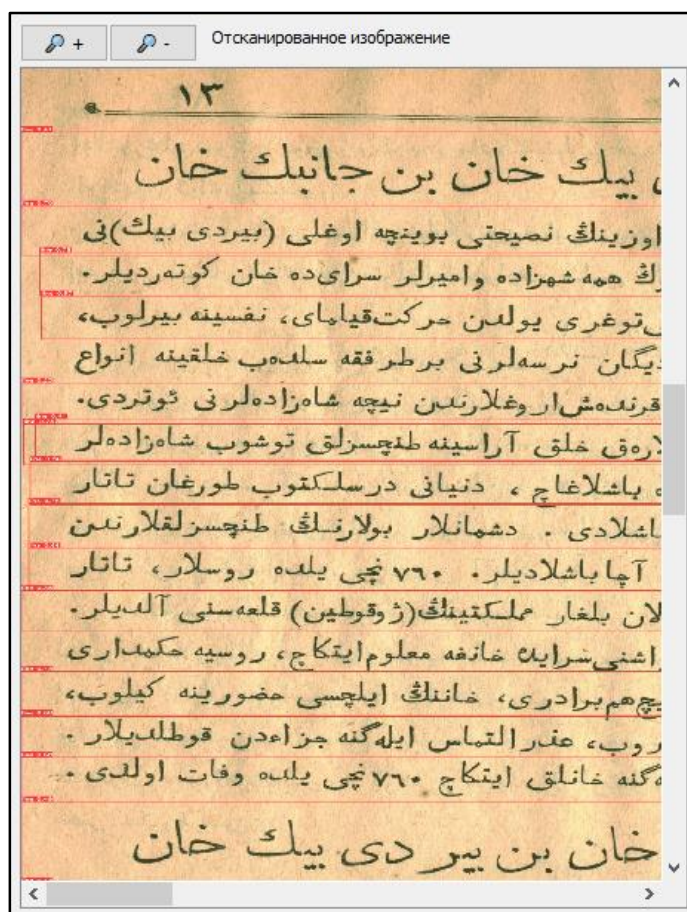 +
-
Отсканированное изображение
١٣
بيك خان بن جانبك خان
اوزينڭ نصيحتى بوينچه اوغلى (بيردى بيك)نى
همه شهزاده واميرلر سراى‌ده خان كوته‌رديلر.
توغرى يولدن حركت قيلماى، نفسينه بيرلوب،
ديگان نرسه‌لرنى برطرفقه سلدب خلقينه انواع
قرندەش اروغلارندن نيچه شاه‌زاده‌لرنى ئوتردى.
خلق آراسينه طنچسزلق توشوب شاه‌زاده‌لر
باشلاغاچ ، دنيانى درسلكتوب طورغان تاتار
باشلادى . دشمانلار بولارنڭ طنچسزلقلارندن
آچا باشلاديلر. ٧٦٠ نچى يلده روسلار، تاتار
بلغار مملكتينڭ (ژوقوطين) قلعه‌سنى آلديلر.
سرايده خانغه معلوم ايتكاچ، روسيه حكمدارى
هم برادرى، خاننڭ ايلچسى حضورينه كيلوب،
عذر التماس ايله‌گنه جزاءدن قوطلديلار .
خانلق ايتكاچ ٧٦٠ نچى يلده وفات اولدى .
خان بن بير دى بيك خان